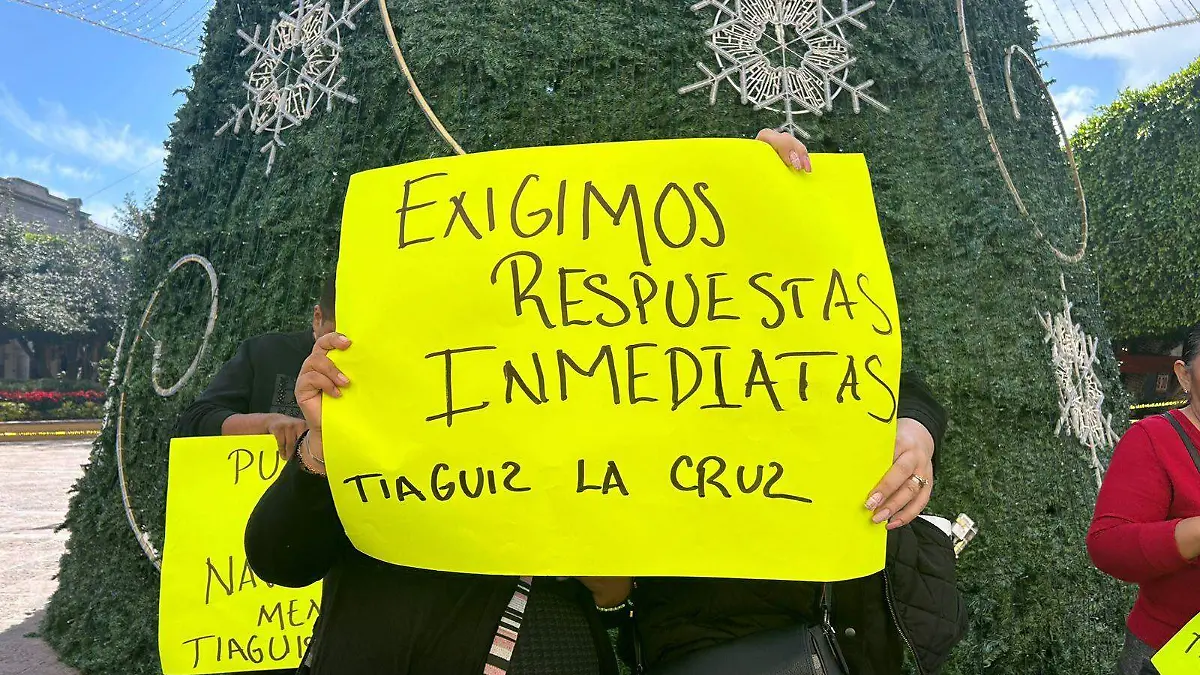 EXIGIMOS
RESPUESTAS
INMEDIATAS
TIAGUIS LA CRUZ
PU
NA
MEN
TIAGUIS